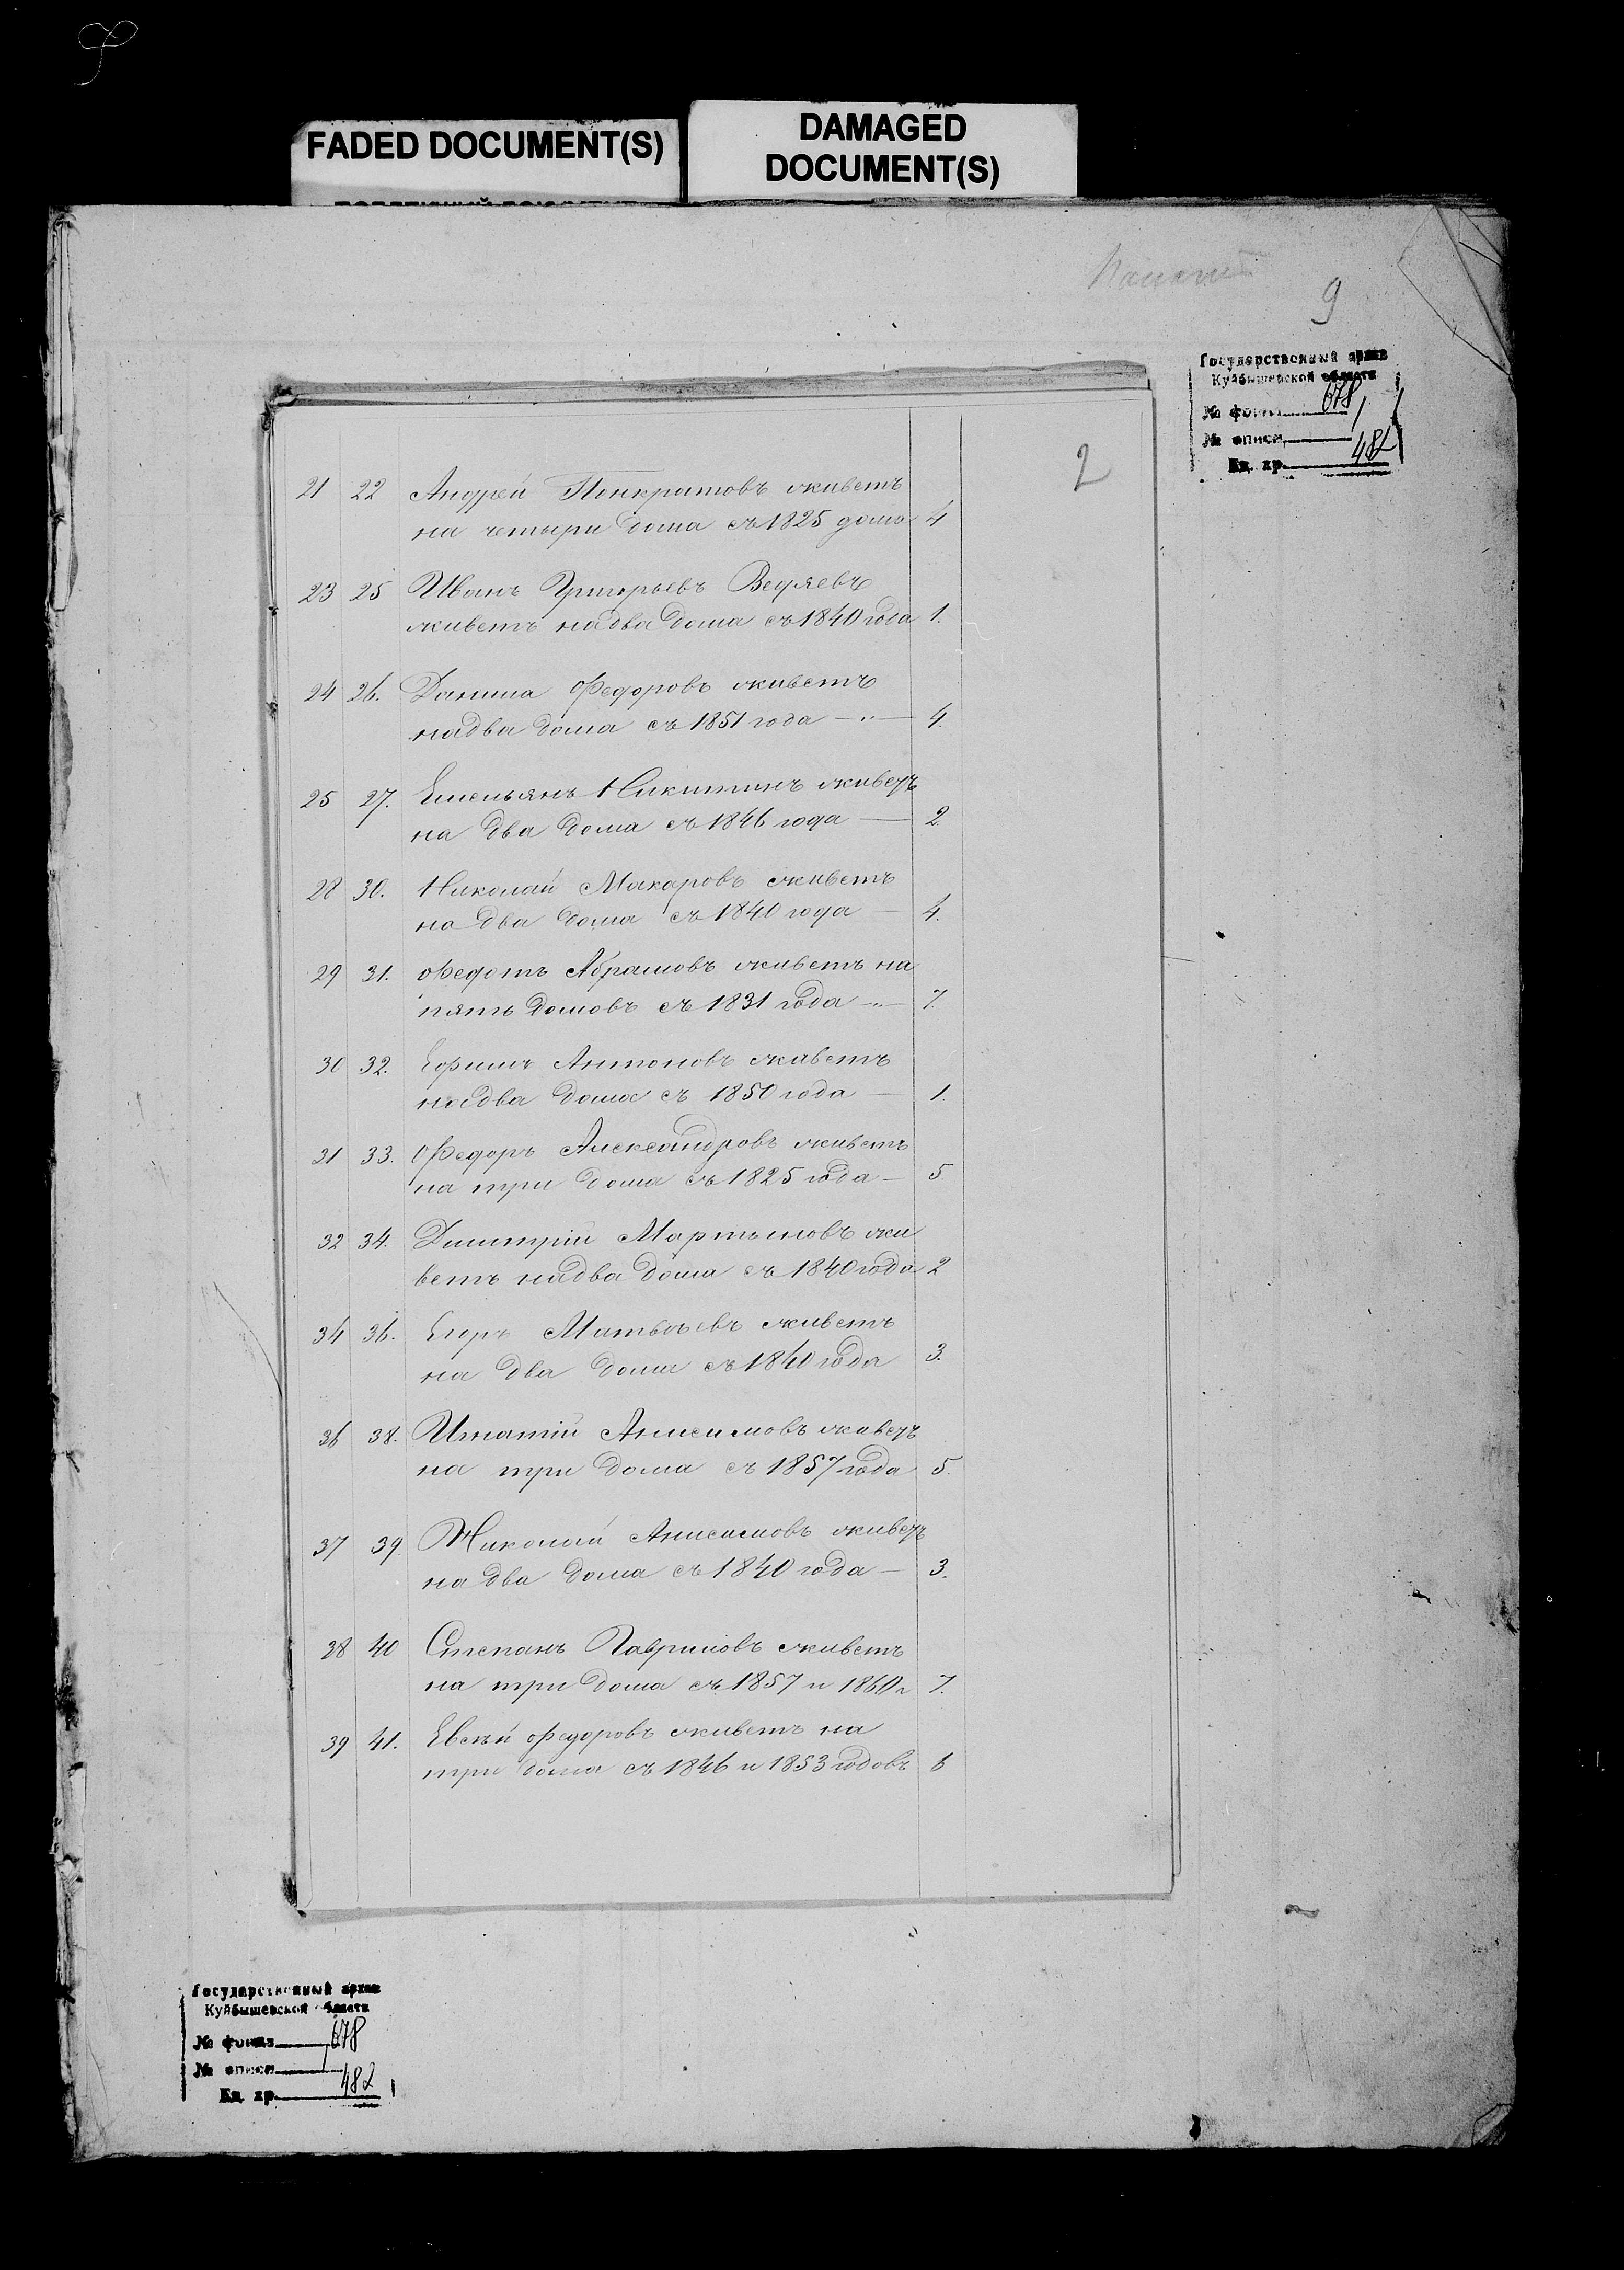 FADED DOCUMENT(S)
DAMAGED
DOCUMENT(S)
9
Государственный архив
Куйбышевской области
№ фонда 678
№ описи 1
Ед. хр. 482
2
21 22 Андрей Понкратовъ живетъ
на четыри дома съ 1825 дома 4
23 25 Иванъ Григорьевъ Ведяевъ
живетъ на два дома съ 1840 года 1.
24 26. Данила Федоровъ живетъ
на два дома съ 1851 года — „ — 4.
25 27. Емельянъ Никитинъ живетъ
на два дома съ 1846 года — 2.
28 30. Николай Макаровъ живетъ
на два дома съ 1840 года — 4.
29 31. Федотъ Абрамовъ живетъ на
пять домовъ съ 1831 года — „ — 7.
30 32. Ефимъ Антоновъ живетъ
на два дома съ 1850 года — 1.
31 33. Федоръ Александровъ живетъ
на три дома съ 1825 года — 5.
32 34. Дмитрій Мартыновъ жи
ветъ на два дома съ 1840 года 2
34 36. Егоръ Матвѣевъ живетъ
на два дома съ 1840 года 3.
36 38. Игнатій Анисимовъ живетъ
на три дома съ 1857 года 5.
37 39. Николай Анисимовъ живетъ
на два дома съ 1840 года — 3.
38 40 Степанъ Гавриловъ живетъ
на три дома съ 1857 и 1860 г. 7.
39 41. Евсѣй Федоровъ живетъ на
три дома съ 1846 и 1853 годовъ 6
Государственный архив
Куйбышевской области
№ фонда 678
№ описи 1
Ед. хр. 482